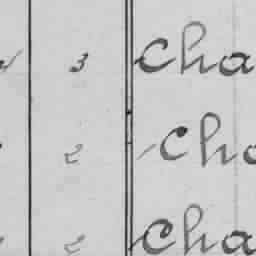 3 Cha
2 Cha
2 Cha